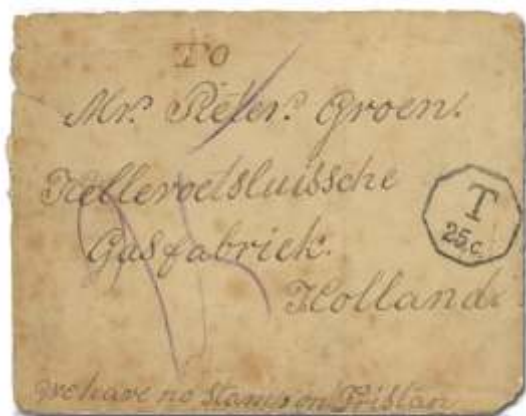 To
Mr. Pieter. Groen.
Helleroetsluissche
Gasfabriek.
Holland.
T
25.c
we have no stamps on Tristan